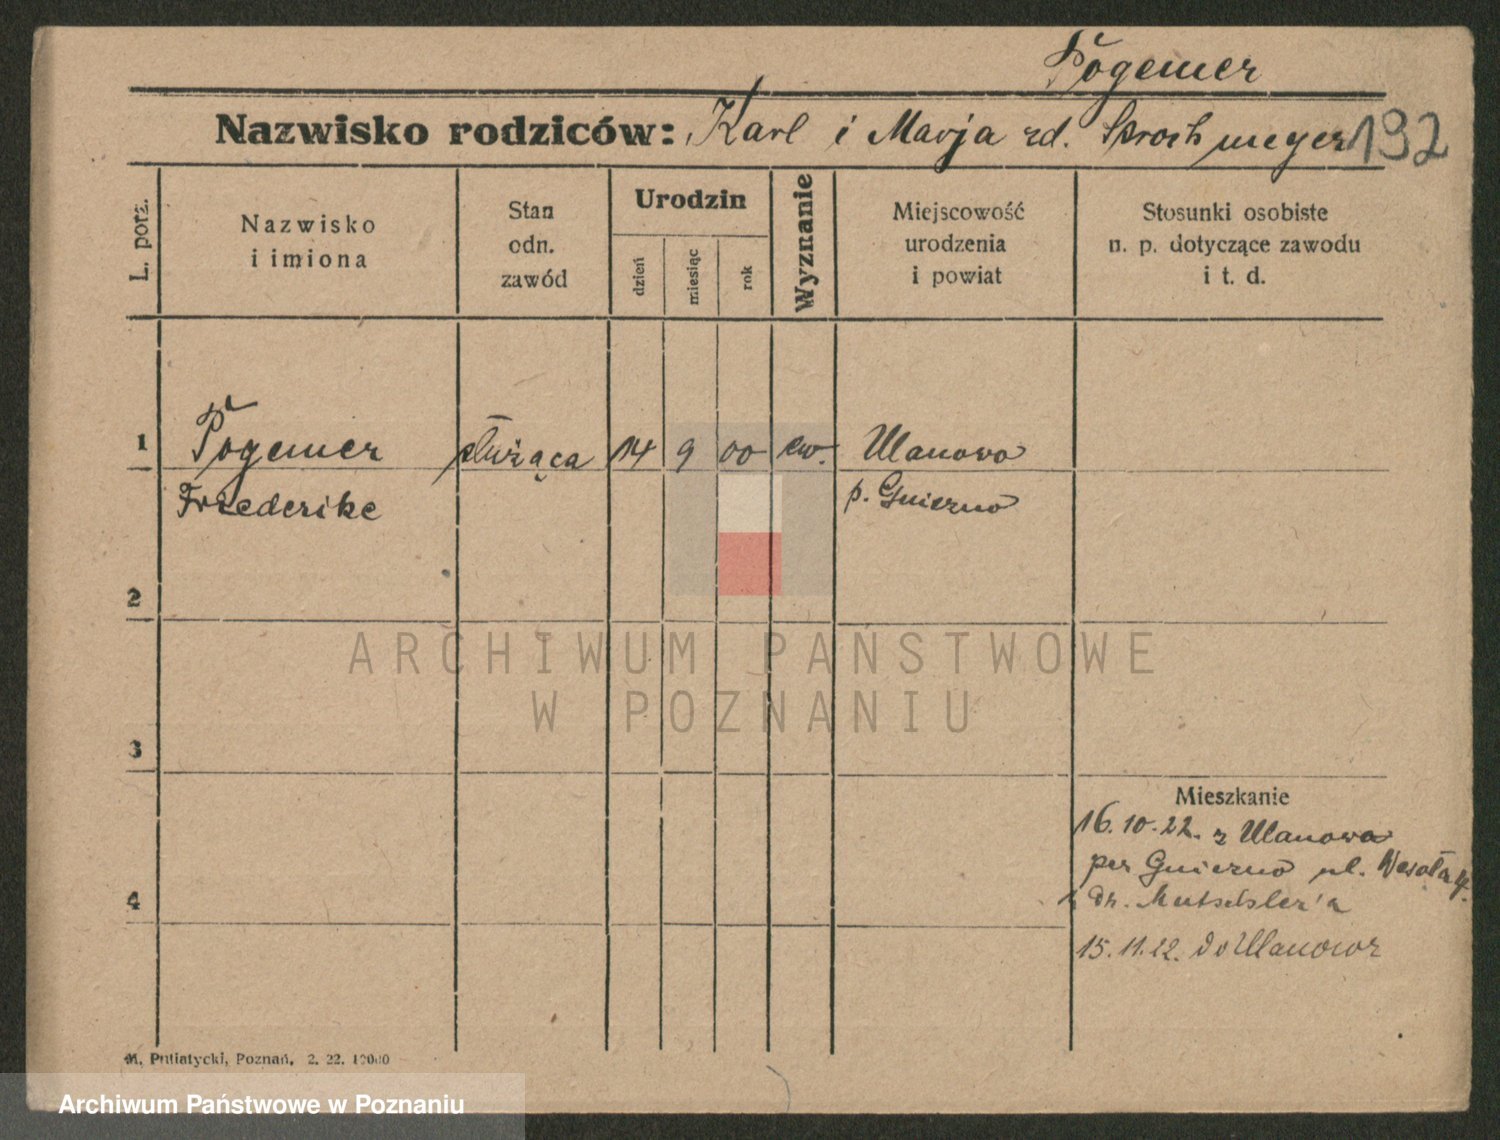 Pögemer
Nazwisko rodziców: Karl i Marja rd. meyer 192
L. porz.
Nazwisko
i imiona
Stan
odn.
zawód
Urodzin
dzień
miesiąc
rok
Wyznanie
Miejscowość
urodzenia
i powiat
Stosunki osobiste
n. p. dotyczące zawodu
i t. d.
1 Pögemer służąca 14 9 00 ew. Ulanowo
Friederike p. Gniezno
2
3
4
Mieszkanie
16.10.22. z Ulanowa
per Gniezno ul. Wesoła 4.
Dr.
15.11.22. do Ulanowa
M. Putiatycki, Poznań, 2. 22. 10000
ARCHIWUM PAŃSTWOWE
W POZNANIU
Archiwum Państwowe w Poznaniu